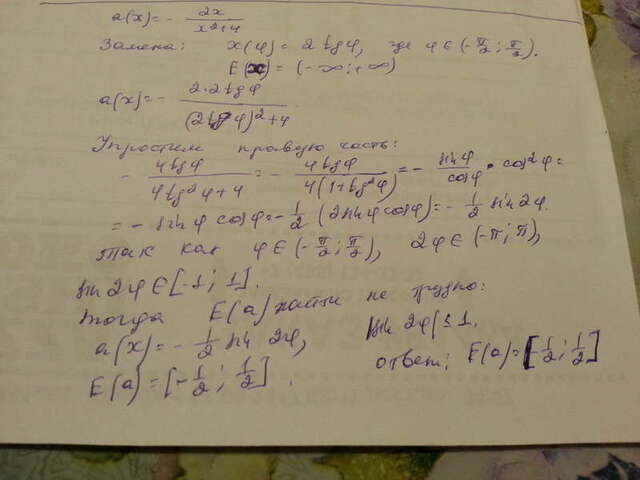 a(x) = - 2x / x²+4
Замена: x(φ) = 2 tg φ, где φ ∈ (-π/2; π/2).
E(x) = (-∞; +∞)
a(x) = - 2·2 tg φ / (2tg φ)²+4
Упростим правую часть:
- 4 tg φ / 4 tg² φ + 4 = - 4 tg φ / 4(1+tg² φ) = - sin φ / cos φ • cos² φ =
= - sin φ cos φ = - 1/2 (2 sin φ cos φ) = - 1/2 sin 2φ.
Так как φ ∈ (-π/2; π/2), 2φ ∈ (-π; π),
sin 2φ ∈ [-1; 1].
Тогда E(a) найти не трудно:
a(x) = - 1/2 sin 2φ, |sin 2φ| ≤ 1.
E(a) = [-1/2; 1/2]. Ответ: E(a) = [-1/2; 1/2]